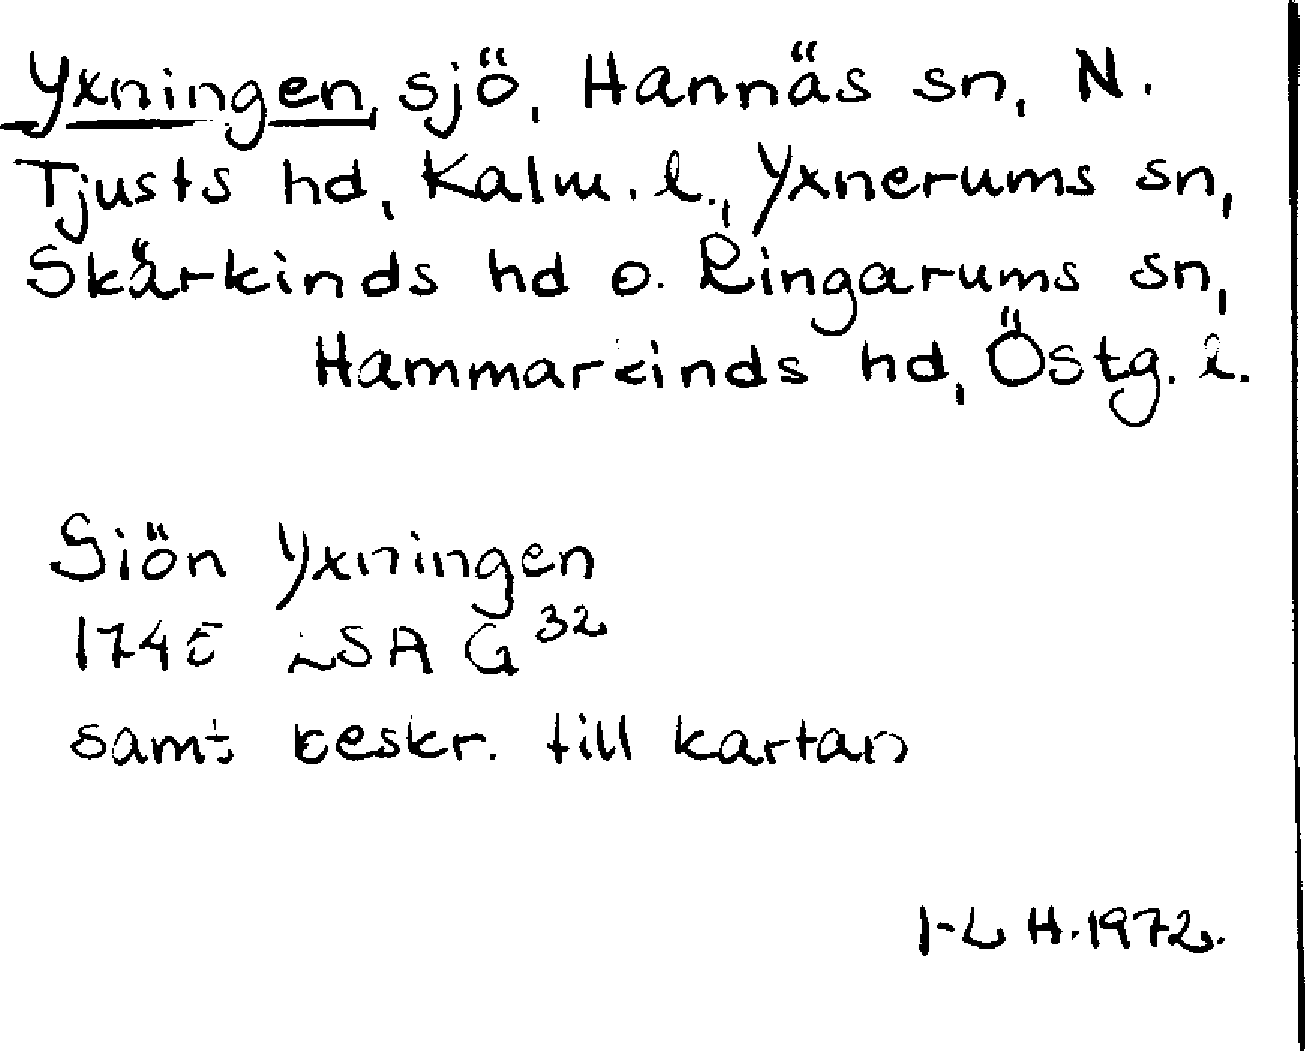 Yxningen, sjö, Hannäs sn, N.
Tjusts hd, Kalm. l., Yxnerums sn,
Skärkinds hd o. Ringarums sn,
Hammarkinds hd, Östg. l.
Siön Yxningen
1745 LSA G 32
samt beskr. till kartan
I-L H. 1972.